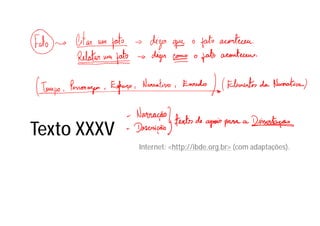 Fato → Citar um fato → dizer que o fato aconteceu.
Relatar um fato → dizer como o fato aconteceu.
(Tempo, Personagem, Espaço, Narrativo, Enredo). (Elementos da Narrativa)
- Narração
- Descrição } textos de apoio para a Dissertação
Texto XXXV
Internet: <http://ibde.org.br> (com adaptações).